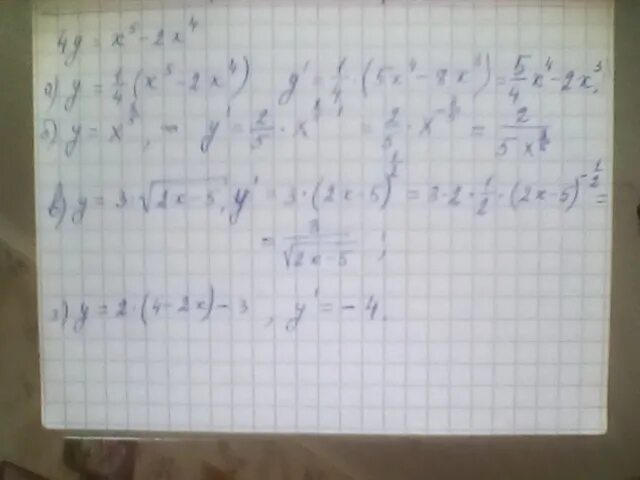 4y = x⁵ - 2x⁴
а) y = 1/4 (x⁵ - 2x⁴) y' = 1/4 · (5x⁴ - 8x³) = 5/4 x⁴ - 2x³,
б) y = x , - y' = 2/5 · x = 2/5 · x = 2/5x
в) y = 3 · √2x - 5, y' = 3 · (2x - 5)^1/2 = 3 · 2 · 1/2 · (2x - 5)^-1/2 =
= 3/√2x - 5 ;
г) y = 2 · (4 - 2x) - 3 , y' = - 4.